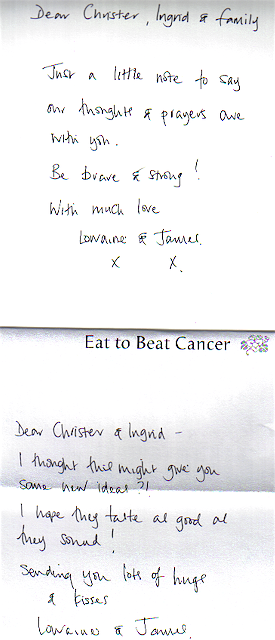 Dear Christer, Ingrid & family
Just a little note to say
our thoughts & prayers are
with you.
Be brave & strong!
With much love
Lorraine & James.
x x.
Eat to Beat Cancer
Dear Christer & Ingrid –
I thought this might give you
some new ideas?!
I hope they taste as good as
they sound!
Sending you lots of hugs
& kisses
Lorraine & James.